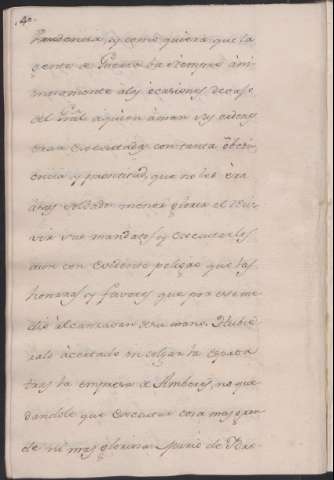 Prudencia, y como quiera que la
gente de Guerra ba siempre ani-
mosamente a las ocasiones
del Gral. a quien aman sus ordenes
eran executadas con tanta obedi-
encia y prontitud, que no les era
soldado menor gloria el
vir sus mandatos, y executarlos
aun con evidente peligro que las
honrras, y favores que por este me-
dio alcanzavan de su mano. Hubie-
ralo acertado en colgar la espada
tras la empresa de Amberes, no que-
dandole que executar cosa mas gran-
de ni mas gloriosa. Murio de